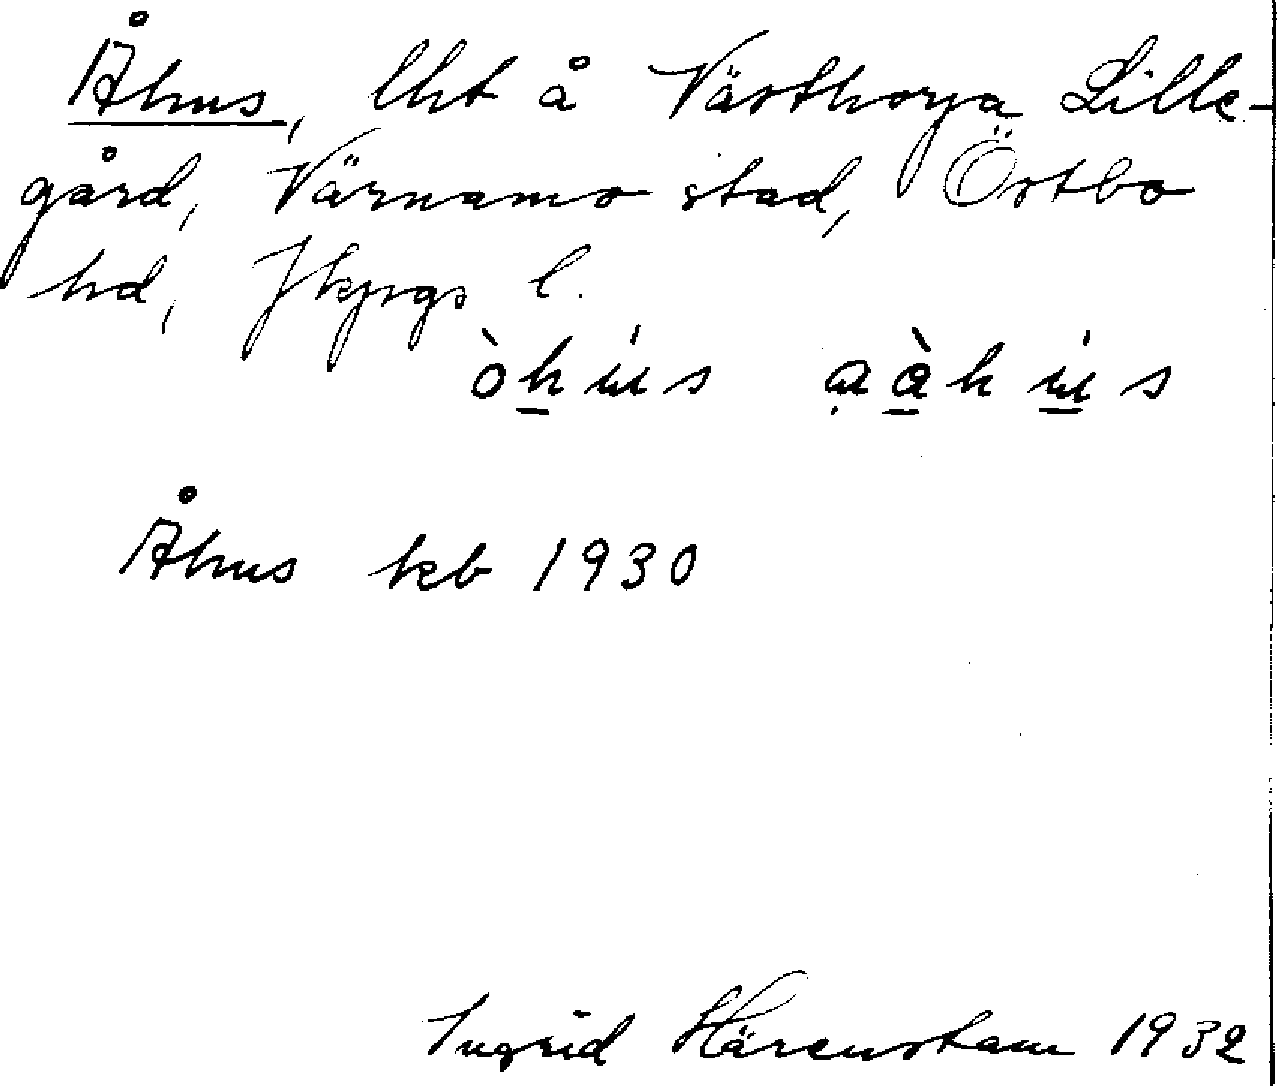 Åhus, lht å Västhorja Lille-
gård, Värnamo stad, Östbo
hd, Jkpgs l.
Åhus kb 1930
Ingrid Härenstam 1932